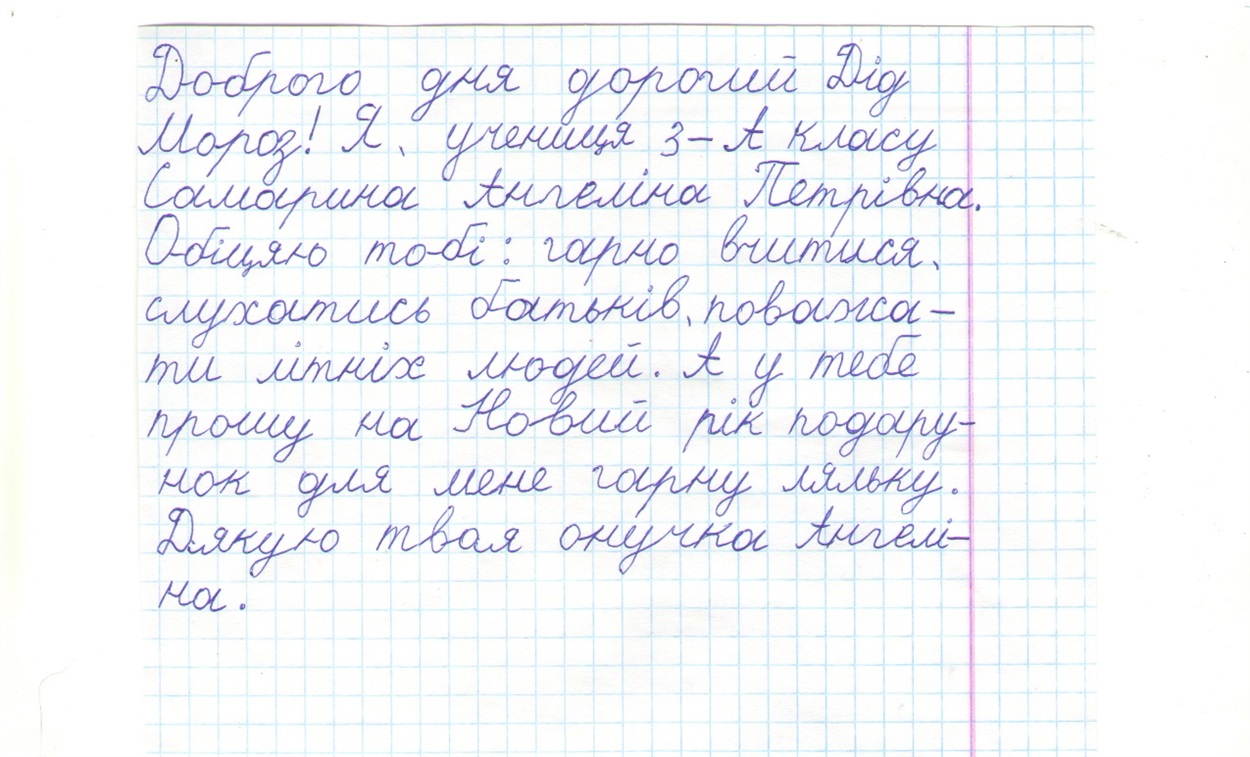 Доброго дня дорогий Дід
Мороз! Я, учениця 3-А класу
Самарина Ангеліна Петрівна.
Обіцяю тобі: гарно вчитися,
слухатись батьків, поважа-
ти літніх людей. А у тебе
прошу на Новий рік подару-
нок для мене гарну ляльку.
Дякую твоя онучка Ангелі-
на.